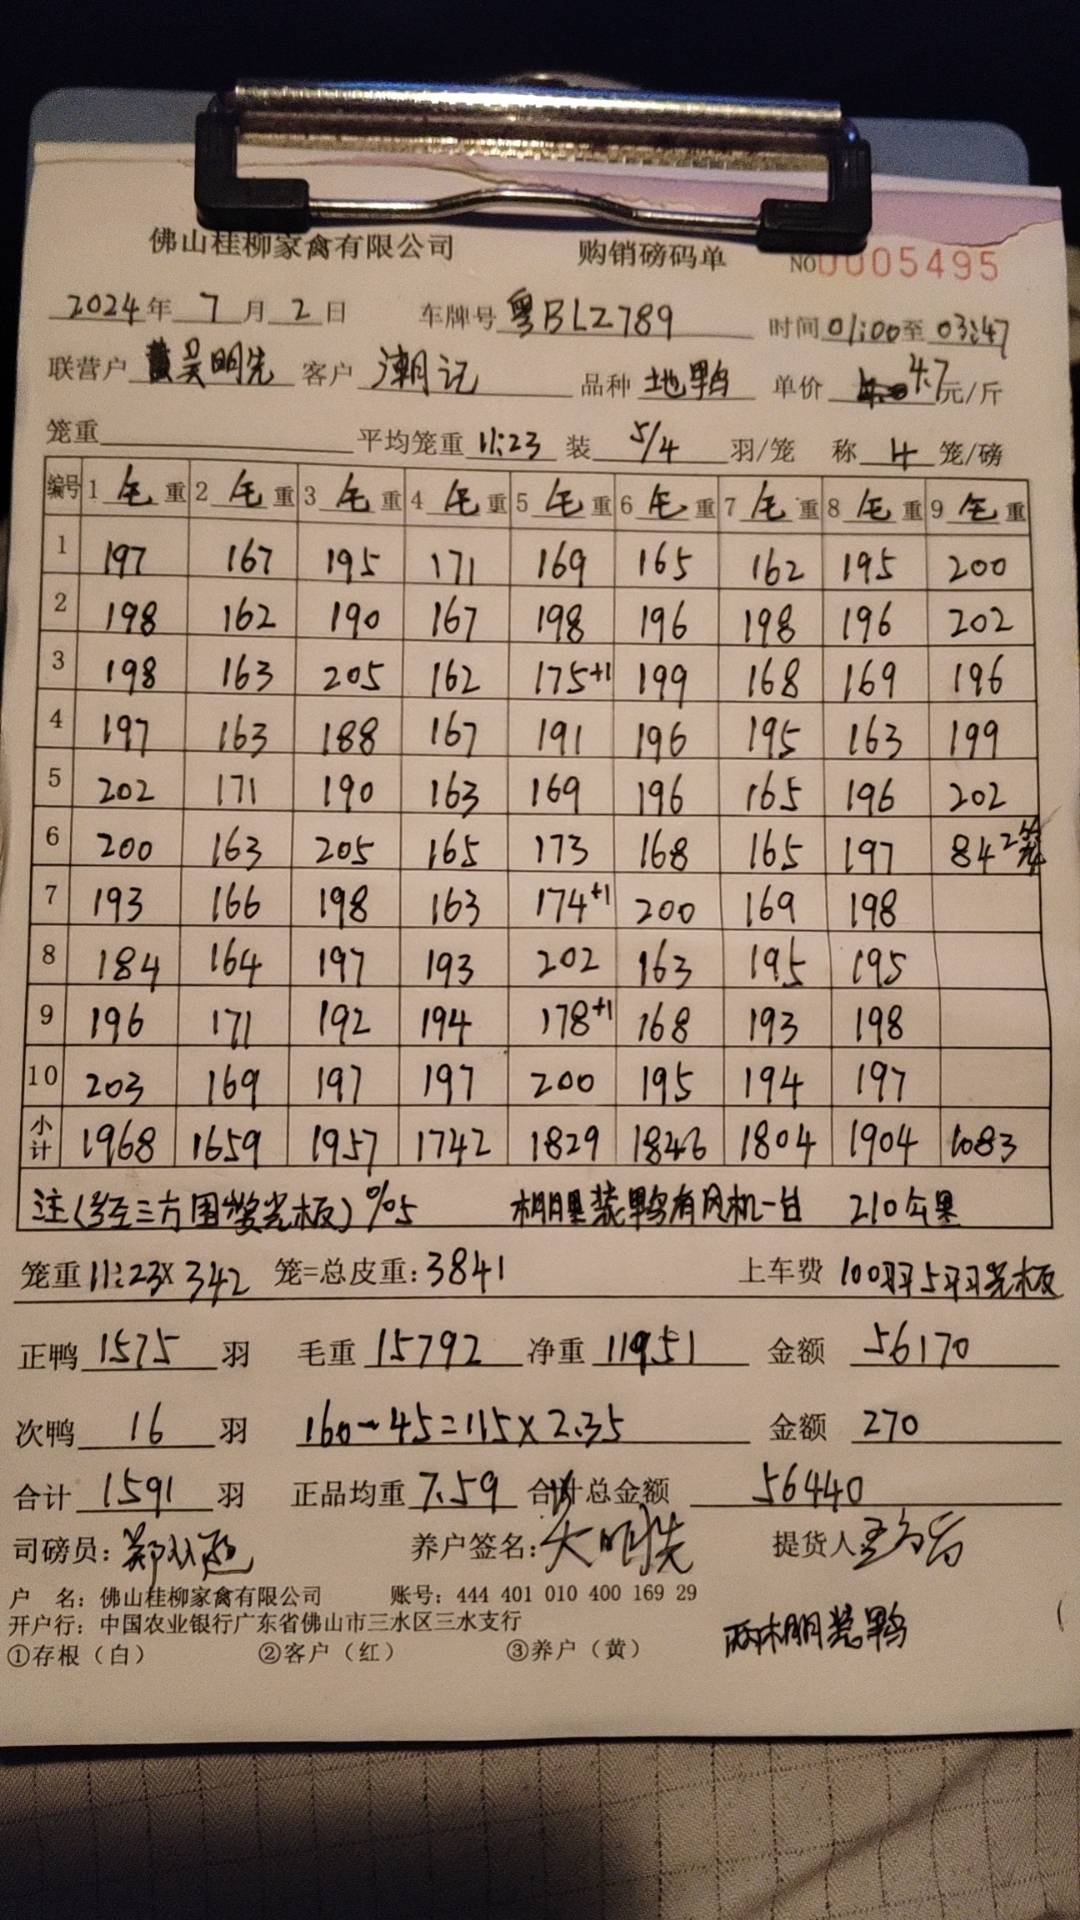 佛山桂柳家禽有限公司 购销磅码单 NO 0005495
2024年 7月 2日 车牌号 粤BLZ789 时间 01:00至 03:47
联营户 吴明先 客户 潮记 品种 土鸭 单价 4.7元/斤
笼重 平均笼重 11:23 装 5/4 羽/笼 称 4 笼/磅
编号 1 毛重 2 毛重 3 毛重 4 毛重 5 毛重 6 毛重 7 毛重 8 毛重 9 毛重
1 197 167 195 171 169 165 162 195 200
2 198 162 190 167 198 196 198 196 202
3 198 163 205 162 175+1 199 168 169 196
4 197 163 188 167 191 196 195 163 199
5 202 171 190 163 169 196 165 196 202
6 200 163 205 165 173 168 165 197 84 2笼
7 193 166 198 163 174+1 200 169 198
8 184 164 197 193 202 163 195 195
9 196 171 192 194 178+1 168 193 198
10 203 169 197 197 200 195 194 197
小计 1968 1659 1957 1742 1829 1846 1804 1904 1083
注(经三方同意光板)%5 棚里装鸭有风机一台 210公里
笼重 11:23×342 笼=总皮重:3841 上车费 100羽5羽光板
正鸭 1575 羽 毛重 15792 净重 11951 金额 56170
次鸭 16 羽 160-45=115×2.35 金额 270
合计 1591 羽 正品均重 7.59 合计总金额 56440
司磅员: 养户签名: 提货人
户 名:佛山桂柳家禽有限公司 账号:444 401 010 400 169 29
开户行:中国农业银行广东省佛山市三水区三水支行
①存根(白) ②客户(红) ③养户(黄) 两棚装鸭